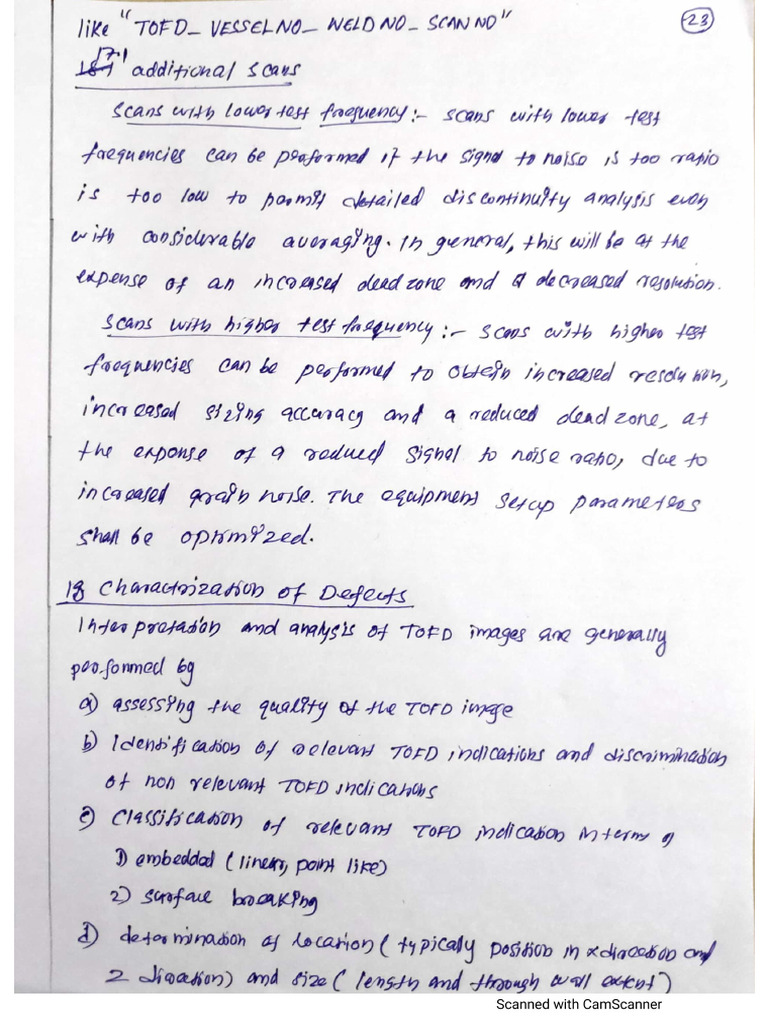 like "TOFD_ VESSELNO_ WELD NO_ SCAN NO"
23
17.1 additional scans
Scans with lower test frequency:- scans with lower test
frequencies can be performed if the signal to noise is too ratio
is too low to permit detailed discontinuity analysis even
with considerable averaging. In general, this will be at the
expense of an increased dead zone and decreased resolution.
Scans with higher test frequency:- scans with higher test
frequencies can be performed to obtain increased resolution,
increased sizing accuracy and a reduced dead zone, at
the expense of a reduced signal to noise ratio, due to
increased grain noise. The equipment setup parameters
shall be optimized.
18 Charactrization of Defects
Interpretation and analysis of TOFD images are generally
performed by
a) assessing the quality of the TOFD image
b) Identification of relevant TOFD indications and discrimination
of non relevant TOFD indications
c) Classification of relevant TOFD indication in terms of
1) embedded (linear, point like)
2) surface breaking
d) determination of location (typically position in x direction and
z direction) and size (length and through wall extent)
Scanned with CamScanner